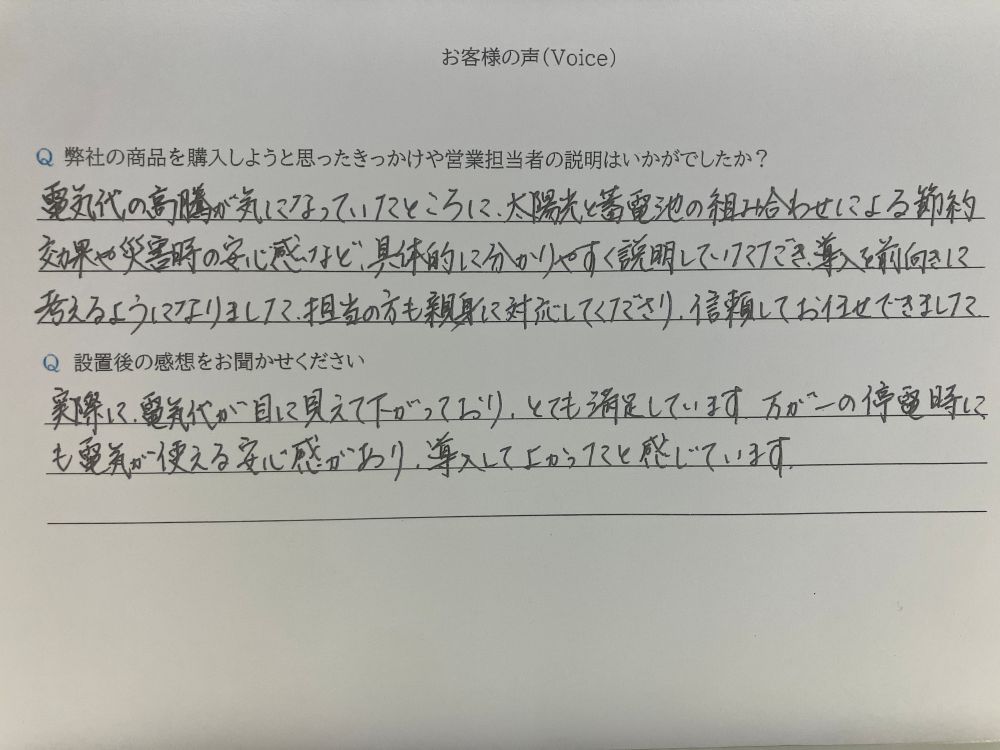 お客様の声(Voice)
Q 弊社の商品を購入しようと思ったきっかけや営業担当者の説明はいかがでしたか？
電気代の高騰が気になっていたところに、太陽光と蓄電池の組み合わせによる節約
効果や災害時の安心感など、具体的に分かりやすく説明していただき、導入を前向きに
考えるようになりました。担当の方も親身に対応してくださり、信頼してお任せできました。
Q 設置後の感想をお聞かせください
実際に、電気代が目に見えて下がっており、とても満足しています。万が一の停電時に
も電気が使える安心感があり、導入してよかったと感じています。